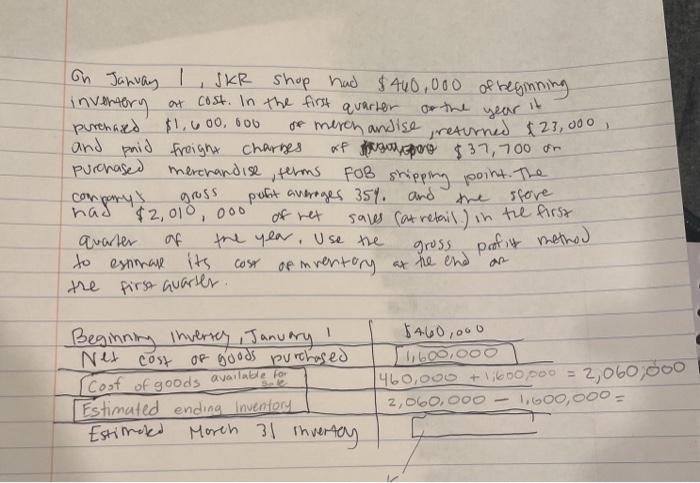 On January 1, JKR shop had $460,000 of beginning
inventory at cost. In the first quarter of the year it
purchased $1,600,000 of merchandise, returned $23,000,
and paid freight charges of $37,700 on
purchased merchandise, terms FOB shipping point. The
company's gross pofit averages 35%. and the store
had $2,010,000 of net sales (at retail) in the first
quarter of the year. Use the gross profit method
to estimate its cost of inventory at the end of
the first quarter.
Beginning Inventory, January 1 $460,000
Net cost of goods purchased 1,600,000
Cost of goods available for sale 460,000 + 1,600,000 = 2,060,000
Estimated ending inventory 2,060,000 - 1,600,000 =
Estimated March 31 inventory